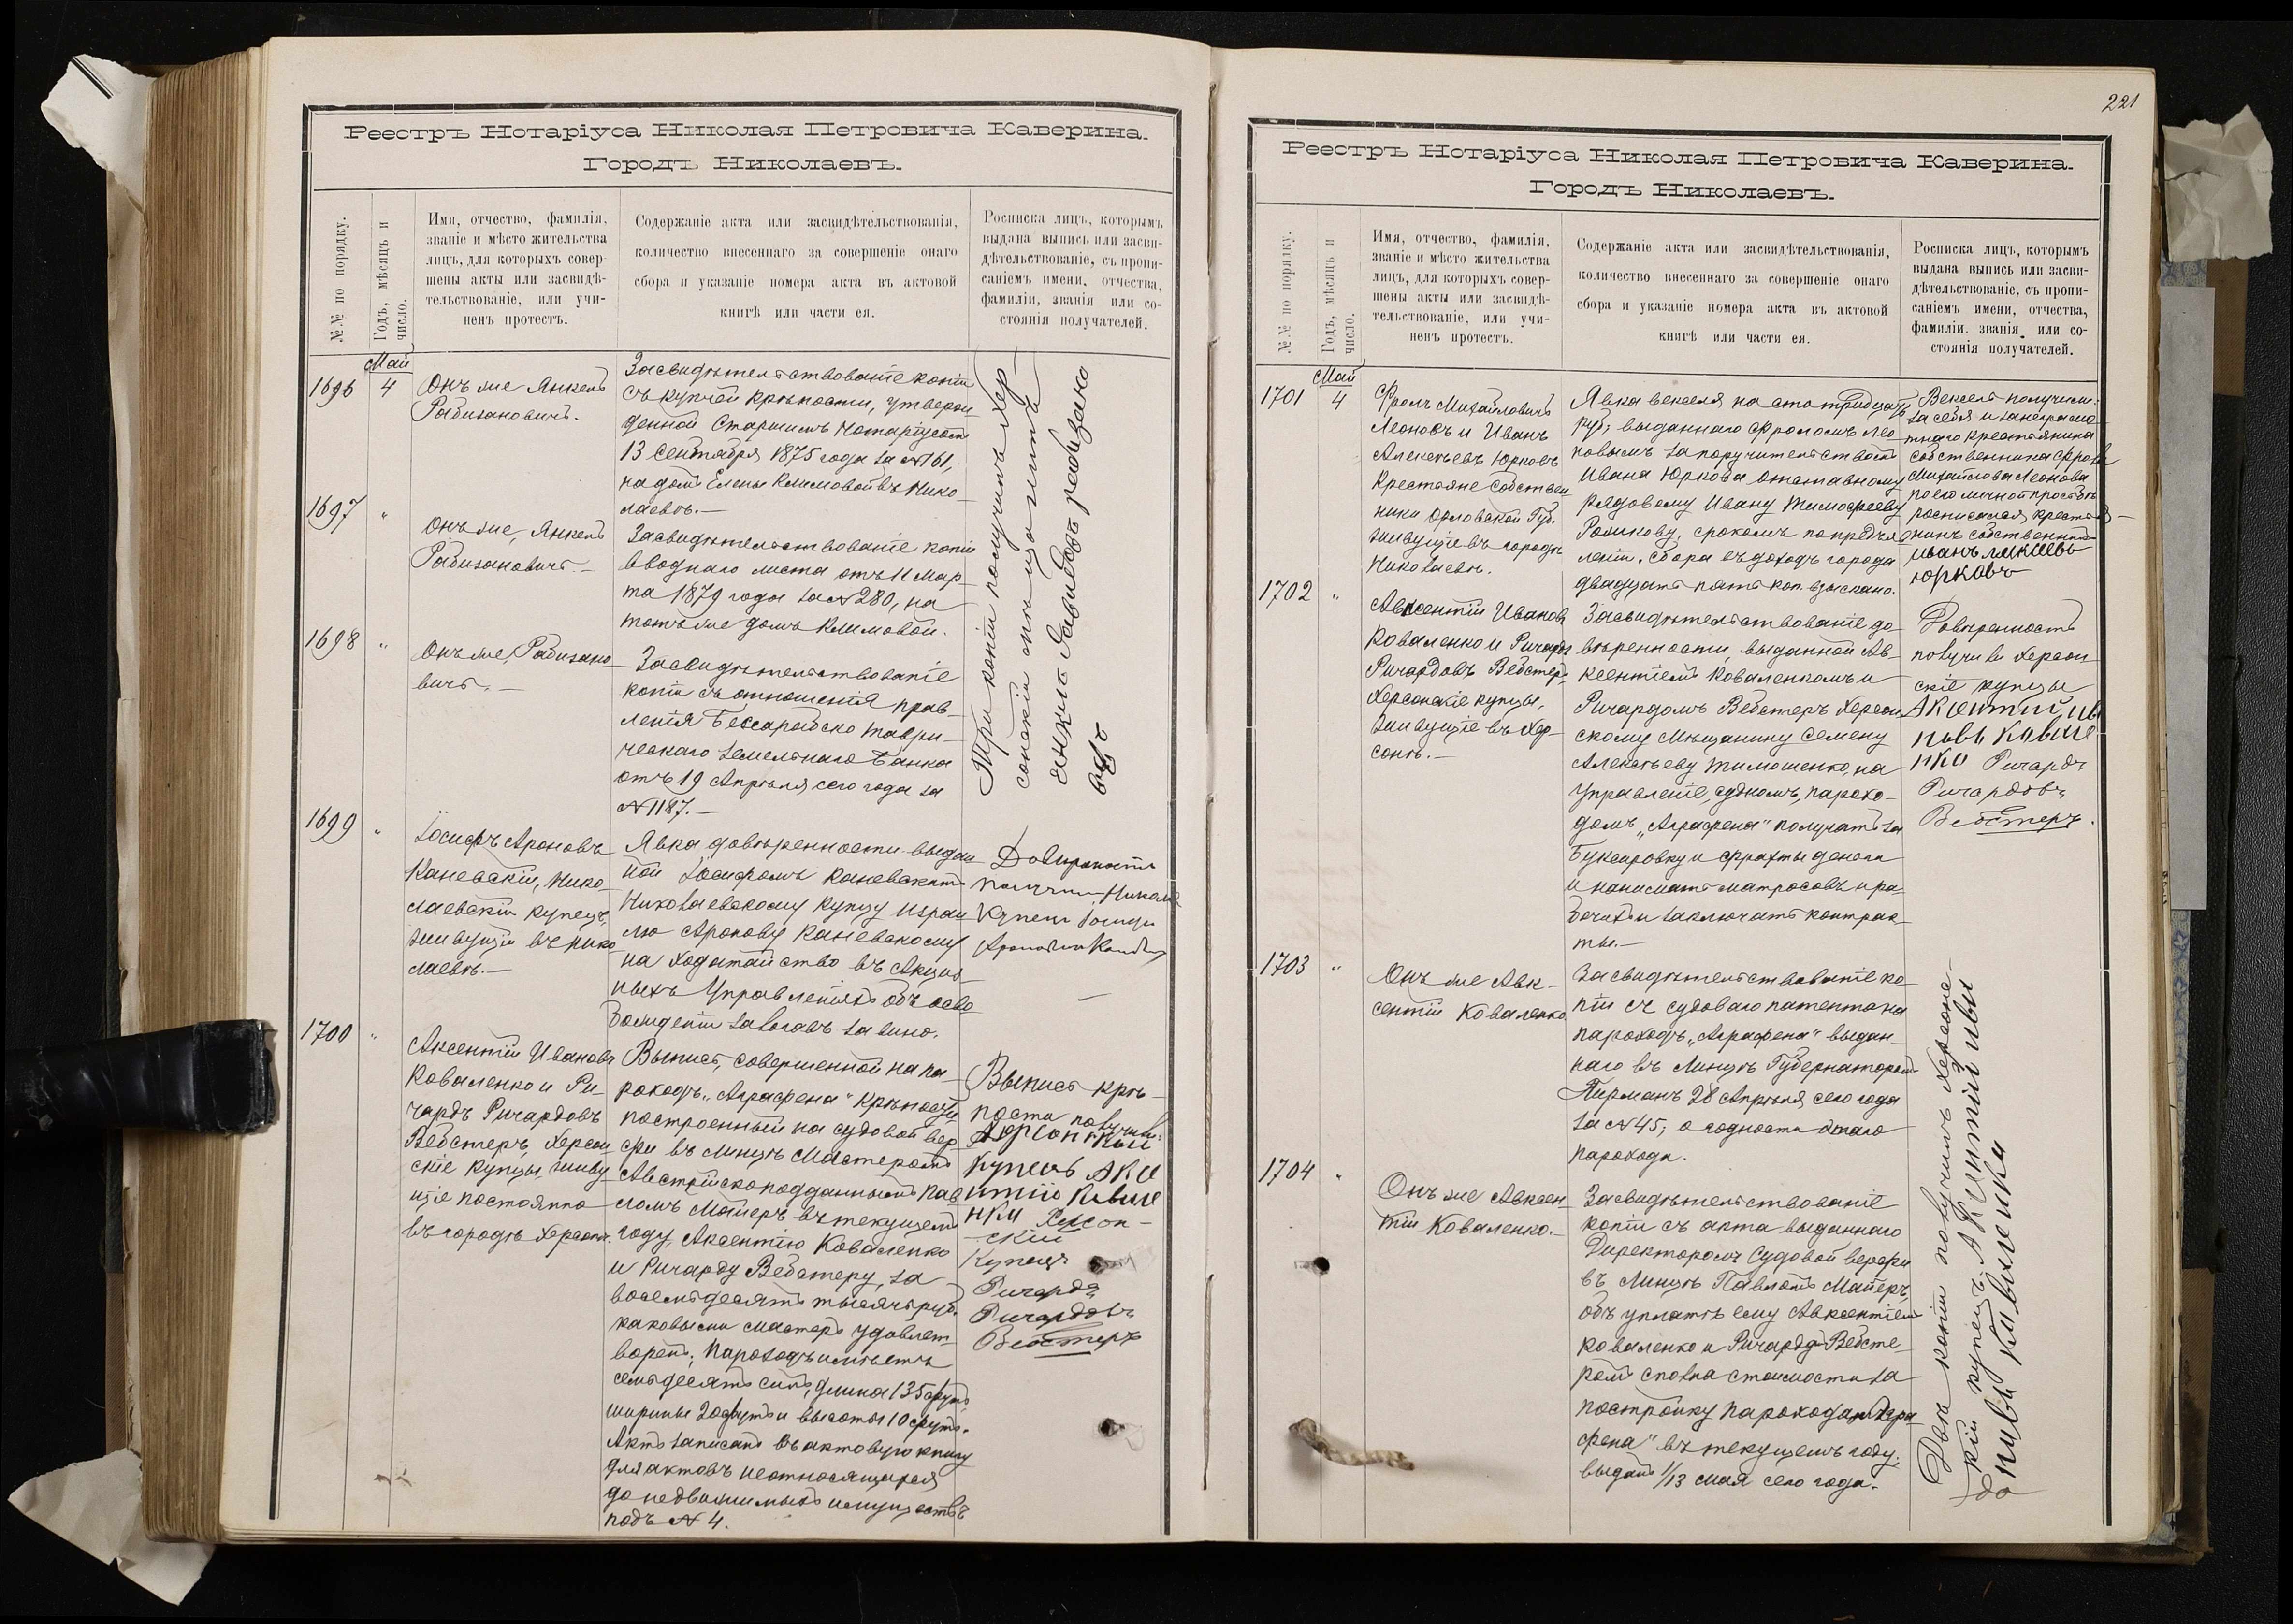 Реестръ Нотаріуса Николая Петровича Каверина.
Городъ Николаевъ.
№№ по порядку.
Годъ, мѣсяцъ и число.
Имя, отчество, фамилія,
званіе и мѣсто жительства
лицъ, для которыхъ совер-
шены акты или засвидѣ-
тельствованіе, или учи-
ненъ протестъ.
Содержаніе акта или засвидѣтельствованія,
количество внесеннаго за совершеніе онаго
сбора и указаніе номера акта въ актовой
книгѣ или части ея.
Росписка лицъ, которымъ
выдана выпись или засви-
дѣтельствованіе, съ пропи-
саніемъ имени, отчества,
фамиліи, званія или со-
стоянія получателей.
Май
1696
4
Онъ же Янкель
Рабизановичъ.
Засвидѣтельствованіе копіи
съ купчей крѣпости, утверж
денной Старшимъ Нотаріусомъ
13 Сентября 1875 года за №161,
на домъ Елены Климовой въ Нико-
лаевѣ.—
1697
"
Онъ же, Янкель
Рабизановичъ.—
Засвидѣтельствованіе копіи
вводнаго листа отъ 11 Мар-
та 1879 года за №280, на
тотъ же домъ Климовой.
1698
"
Онъ же, Рабизано-
вичъ.—
Засвидѣтельствованіе
копіи съ отношенія прав-
ленія Бессарабско Таври-
ческаго Земельнаго Банка
отъ 19 Апрѣля сего года за
№1187.—
Три копіи получилъ Хер-
сонскій мѣщанинъ
1699
"
Іосифъ Ароновъ
Каневскій, Нико-
лаевскій купецъ,
живущій въ Нико
лаевѣ.—
Явка довѣренности выдан
ной Іосифомъ Каневскимъ
Николаевскому купцу Израи
лю Аронову Каневскому
на ходатайство въ Акциз-
ныхъ Управленіяхъ объ осво
божденіи залоговъ за вино.
Довѣренность
получилъ Никол
Купецъ Іосифъ
1700
"
Аксентій Ивановъ
Коваленко и Ри-
чардъ Ричардовъ
Вебстеръ, Херсон
скіе купцы, живу
щіе постоянно
въ городѣ Херсонѣ.
Выпись, совершенной на па-
роходъ „Аграфена" крѣпости,
построенный на судовой вер-
фи въ Линцѣ Мастеромъ
Австрійскоподданнымъ Пав
ломъ Майеръ въ текущемъ
году, Аксентію Коваленко
и Ричарду Вебстеру, за
восемьдесятъ тысячъ руб.
каковыми мастеръ удовлет-
воренъ; пароходъ имѣетъ
семьдесятъ силъ, длина 135 футъ,
ширины 20 футъ и высоты 10 футъ.
Актъ записанъ въ актовую книгу
для актовъ неотносящихся
до недвижимыхъ имуществъ
подъ № 4.
Выпись крѣ-
пости получили:
Херсонский
купецъ
Херсон-
скій
Купецъ
Ричардъ
Ричардовъ
Вебстеръ
221
Реестръ Нотаріуса Николая Петровича Каверина.
Городъ Николаевъ.
№№ по порядку.
Годъ, мѣсяцъ и число.
Имя, отчество, фамилія,
званіе и мѣсто жительства
лицъ, для которыхъ совер-
шены акты или засвидѣ-
тельствованіе, или учи-
ненъ протестъ.
Содержаніе акта или засвидѣтельствованія,
количество внесеннаго за совершеніе онаго
сбора и указаніе номера акта въ актовой
книгѣ или части ея.
Росписка лицъ, которымъ
выдана выпись или засви-
дѣтельствованіе, съ пропи-
саніемъ имени, отчества,
фамиліи, званія или со-
стоянія получателей.
Май
1701
4
Фролъ Михайловичъ
Леоновъ и Иванъ
Алексѣевъ Юрковъ
Крестьяне Собствен
ники Орловской Губ.
живущіе въ городѣ
Николаевѣ.
Явка векселя на сто тридцать
руб; выданнаго Фроломъ Лео-
новымъ за поручительствомъ
Ивана Юркова отставному
рядовому Ивану Тимофееву
Родикову, срокомъ по предъяв
ленію. Сбора въ доходъ города
двадцать пять коп. взыскано.
Вексель получили:
за себя и за неграмо-
тнаго крестьянина
собственника Фрола
Михайлова Леонова
по его личной просьбѣ
росписался, крестья-
нинъ собственникъ
Юрковъ
1702
"
Авксентій Ивановъ
Коваленко и Ричардъ
Ричардовъ Вебстеръ,
Херсонскіе купцы,
живущіе въ Хер-
сонѣ.—
Засвидѣтельствованіе до-
вѣренности, выданной Ав-
ксентіемъ Коваленкомъ и
Ричардомъ Вебстеръ Херсон
скому Мѣщанину Семену
Алексѣеву Тимошенко, на
управленіе, судномъ, парохо-
домъ „Аграфена" получать за
буксировку и фрахты деньги
и нанимать матросовъ и ра
бочихъ и заключать контрак-
ты.—
Довѣренность
получили Херсон
скіе купцы
Ричардъ
Ричардовъ
Вебстеръ.
1703
"
Онъ же Авк-
сентій Коваленко
Засвидѣтельствованіе ко-
піи съ судоваго патента на
пароходъ „Аграфена" выдан-
наго въ Линцѣ Губернаторомъ
Пирманъ 28 Апрѣля сего года
за №45, о годности этаго
парохода.
1704
"
Онъ же Авксен-
тій Коваленко.—
Засвидѣтельствованіе
копіи съ акта выданнаго
Директоромъ Судовой верфи
въ Линцѣ Павломъ Майеръ,
объ уплатѣ ему Авксентіемъ
Коваленко и Ричардъ Вебсте-
ромъ сполна стоимости за
постройку парохода „Агра
фена" въ текущемъ году.
выданъ 1/13 мая сего года.
Двѣ копіи получилъ Херсонс-
кій купецъ